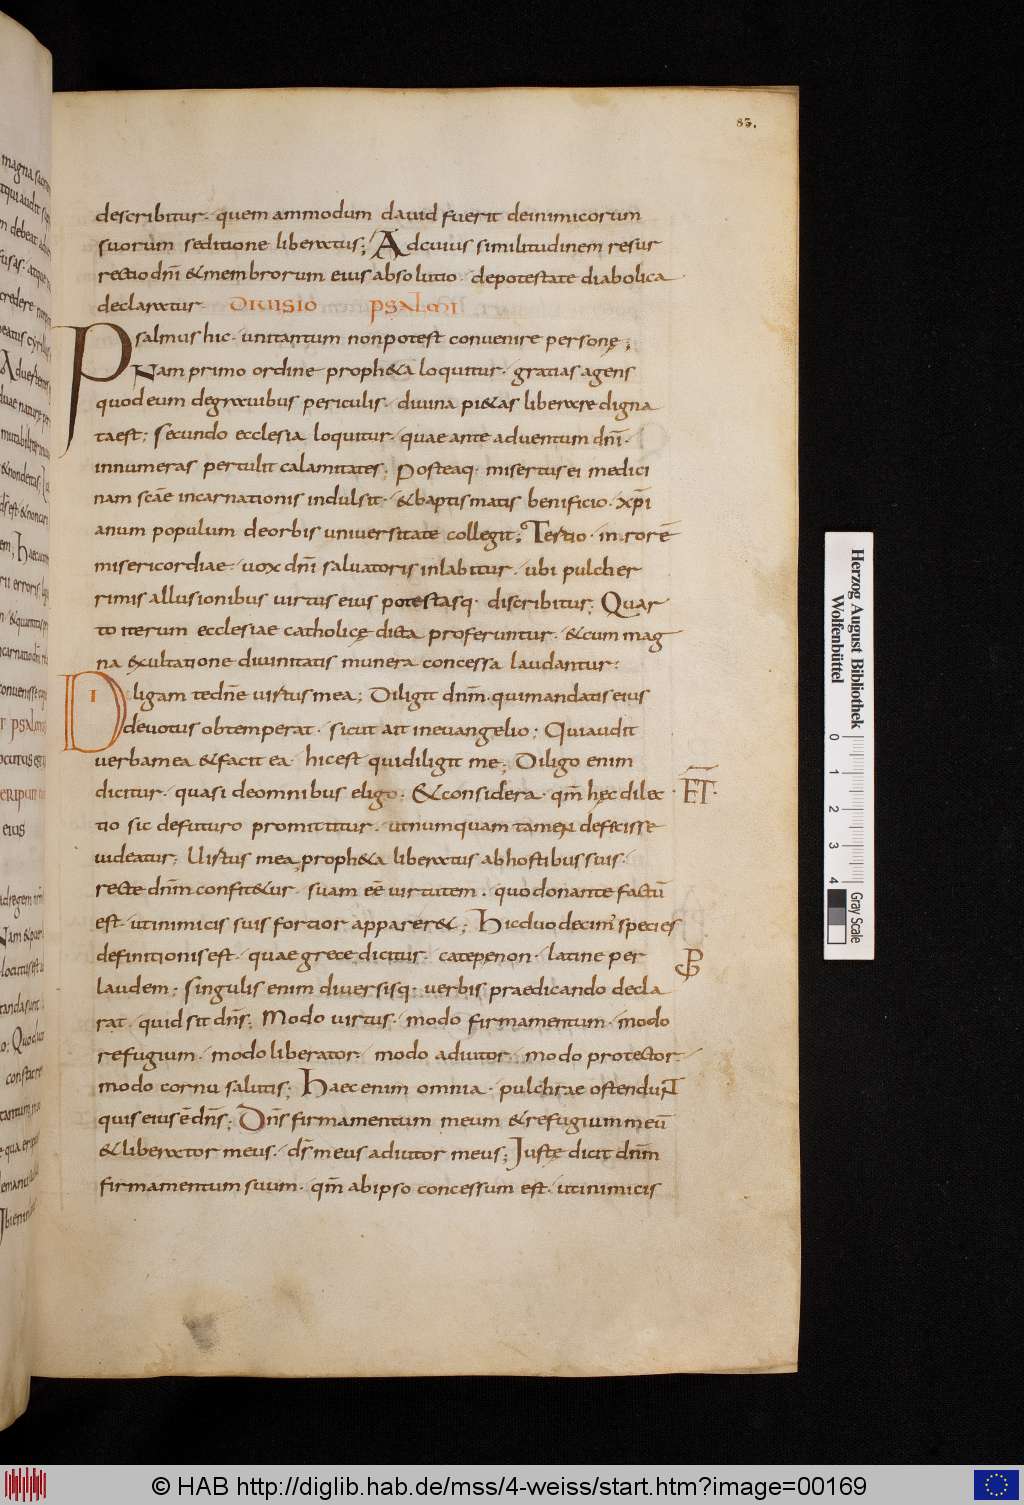 85.
describitur. quem ammodum dauid fuerit deinimicorum
suorum seditione liberatus; Adcuius similitudinem resur
rectio dnī &membrorum eius absolutio. depotestate diabolica
declaratur. DIUISIO PSALMI
Psalmus hic. unitantum nonpotest convenire personę;
Nam primo ordine proph&a loquitur. gratias agens
quod eum degravibus periculis. divina pi&as liberare digna
ta est; Secundo ecclesia loquitur. quae ante adventum dnī.
innumeras pertulit calamitates; Posteaq. misertus ei medici
nam scāe incarnationis indulsit. &baptismatis benificio. xp̄i
anum populum deorbis universitate collegit; Tertio. in rorē
misericordiae. vox dnī salvatoris inlabitur. ubi pulcher
rimis allusionibus virtus eius potestasq. discribitur; Quar
to iterum ecclesiae catholicę dicta proferuntur. &cum mag
na exultatione divinitatis munera concessa laudantur:
Diligam tednē virtus mea; Diligit dnm̄. quimandatis eius
devotus obtemperat. sicut ait inevangelio; Quiaudit
verbamea &facit ea. hicest quidiligit me; Diligo enim
dicitur. quasi deomnibus eligo. &considera. qm̄ hęc dilec ĒT.
tio sic defuturo promittitur. utnumquam tamen defecisse
videatur; Uirtus mea, proph&a liberatus abhostibus suis.
recte dnm̄ confit&ur. suam eē virtutem. quo donante factū
est. utinimicis suis fortior apparer&; Hicduodecim' species
definitionis est. quae grece dicitur. catepenon. latine per
laudem. singulis enim diversisq. verbis praedicando decla
rat. quid sit dn̄s; Modo virtus. modo firmamentum. modo
refugium. modo liberator. modo adiutor. modo protector.
modo cornu salutis; Haec enim omnia. pulchrae ostenduNT
quis eius ē dn̄s; Dn̄s firmamentum meum &refugium meū
&liberator meus. ds̄ meus adiutor meus; Juste dicit dnm̄
firmamentum suum. qm̄ abipso concessum est. utinimicis
Herzog August Bibliothek
Wolfenbüttel
0 1 2 3 4
Gray Scale
© HAB http://diglib.hab.de/mss/4-weiss/start.htm?image=00169